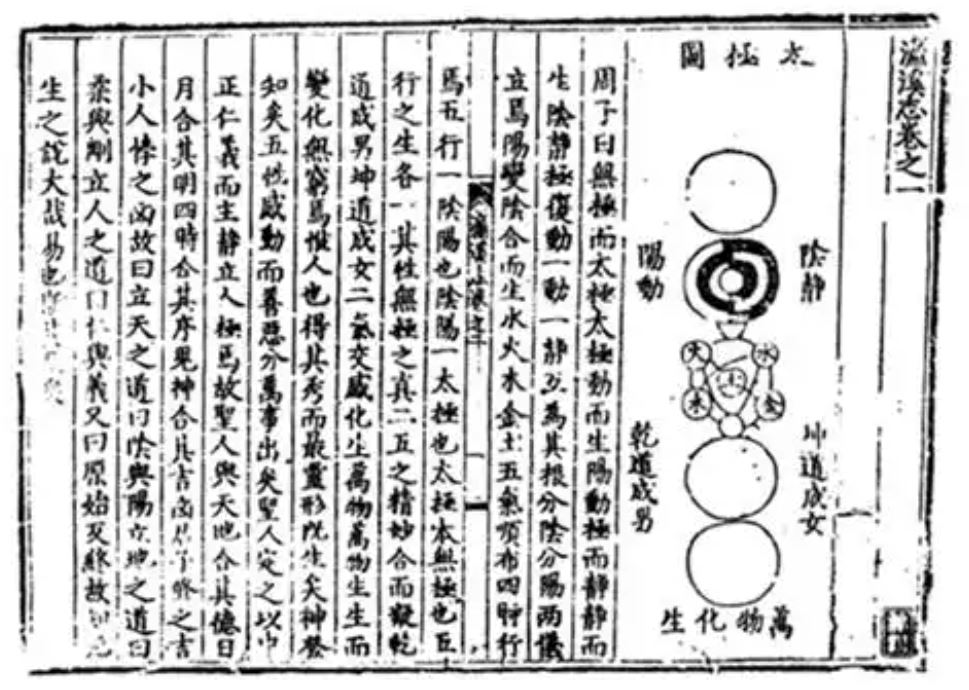 濂溪志卷之一
太極圖
陰靜
陽動
水
火
土
金
木
坤道成女
乾道成男
萬物化生
周子曰無極而太極太極動而生陽動極而靜靜而
生陰靜極復動一動一靜互為其根分陰分陽兩儀
立焉陽變陰合而生水火木金土五氣順布四時行
焉五行一陰陽也陰陽一太極也太極本無極也五
行之生各一其性無極之真二五之精妙合而凝乾
道成男坤道成女二氣交感化生萬物萬物生生而
變化無窮焉惟人也得其秀而最靈形既生矣神發
知矣五性感動而善惡分萬事出矣聖人定之以中
正仁義而主靜立人極焉故聖人與天地合其德日
月合其明四時合其序鬼神合其吉凶君子修之吉
小人悖之凶故曰立天之道曰陰與陽立地之道曰
柔與剛立人之道曰仁與義又曰原始反終故知死
生之說大哉易也